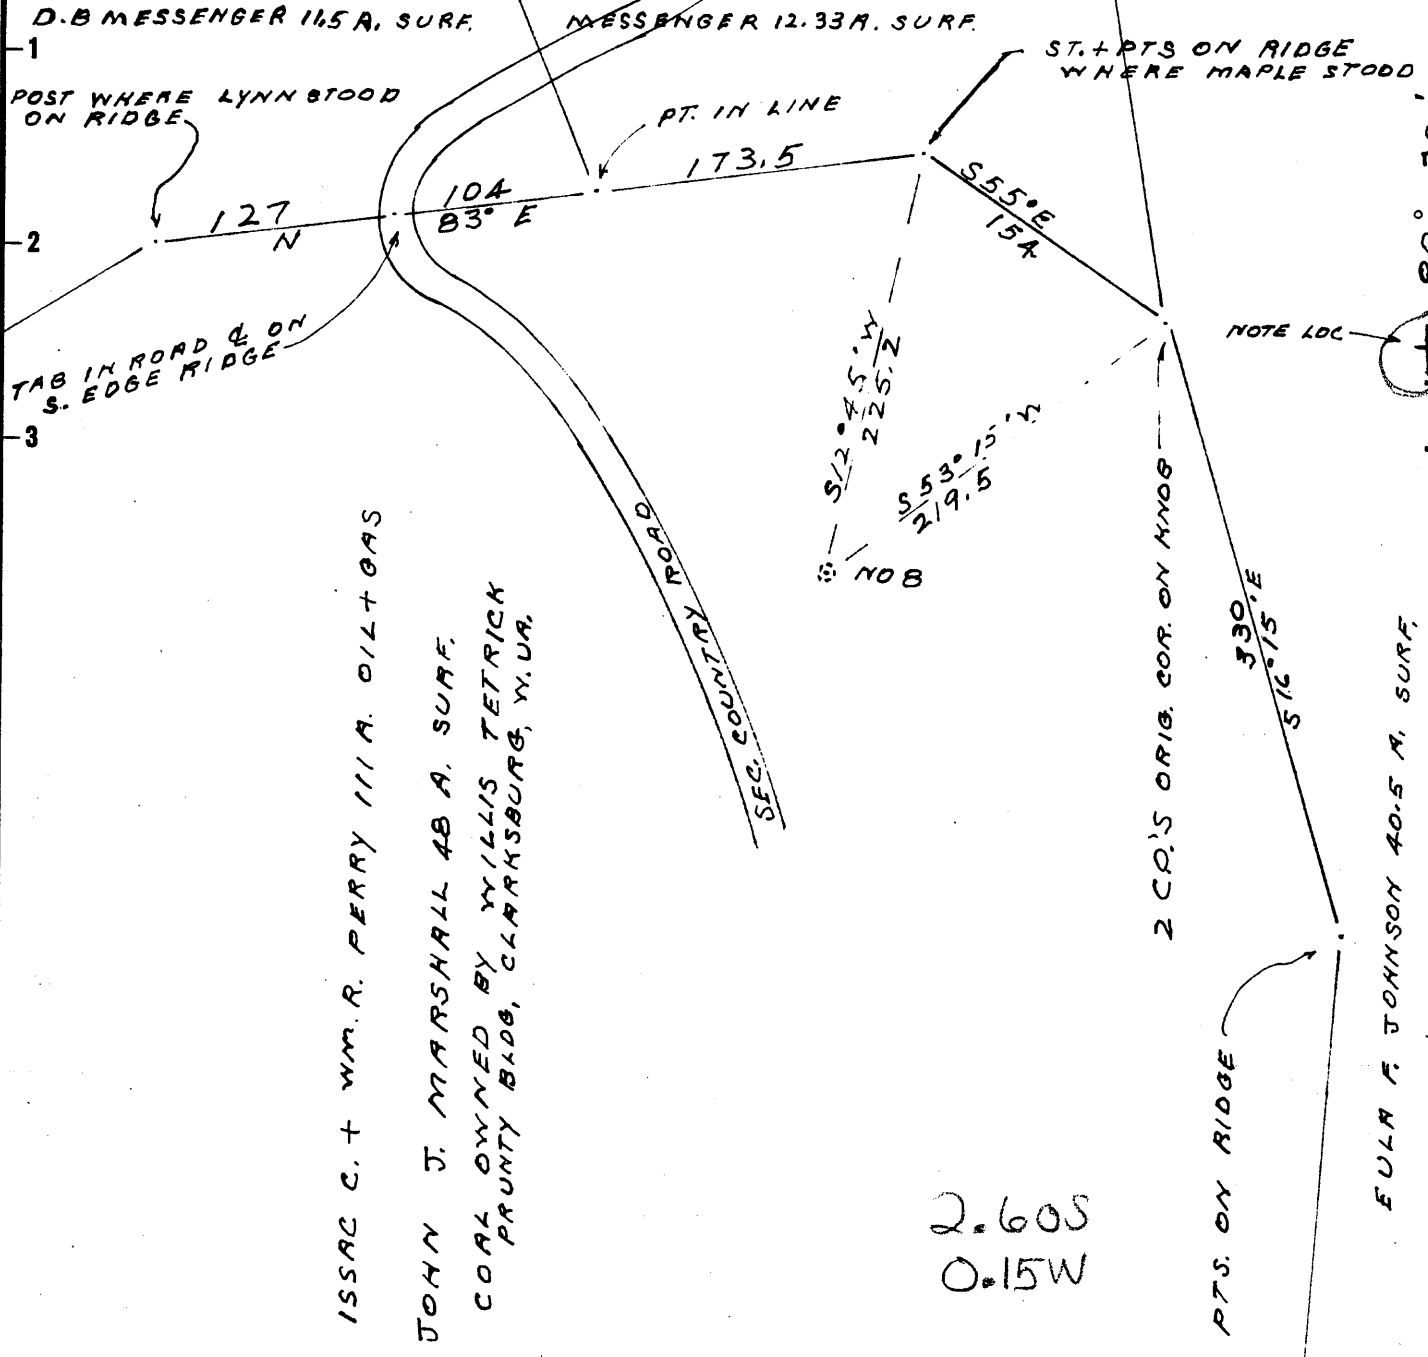 D.B MESSENGER 11.5 A. SURF.
MESSENGER 12.33 A. SURF.
-1
ST. + PTS ON RIDGE
WHERE MAPLE STOOD
POST WHERE LYNN STOOD
ON RIDGE
PT. IN LINE
173.5
104
83° E
127
N
S55°E
154
-2
TAB IN ROAD ℄ ON
S. EDGE RIDGE
NOTE LOC
-3
S12°45'W
225.2
S53°15'W
219.5
NO 8
SEC. COUNTRY ROAD
2 CO.'S ORIG. COR. ON KNOB
330
S16°15'E
ISSAC C. + WM. R. PERRY 111 A. OIL + GAS
JOHN J. MARSHALL 48 A. SURF.
COAL OWNED BY WILLIS TETRICK
PRUNTY BLDG, CLARKSBURG, W.VA.
EULA F. JOHNSON 40.5 A. SURF.
PTS. ON RIDGE
2.60S
0.15W